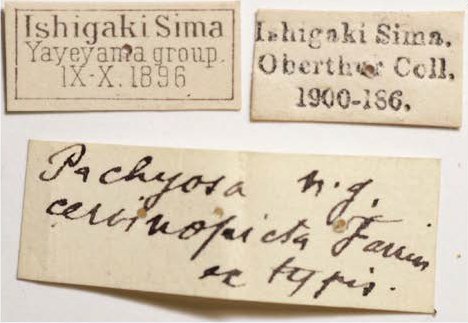 Ishigaki Sima
Yayeyama group.
IX-X. 1896
Ishigaki Sima.
Oberthur Coll.
1900-186.
Pachyosa n. g.
cervinopicta Fairm
ex typis.